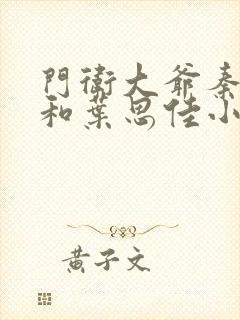 門衛大爺秦
和葉思佳小
黃子文